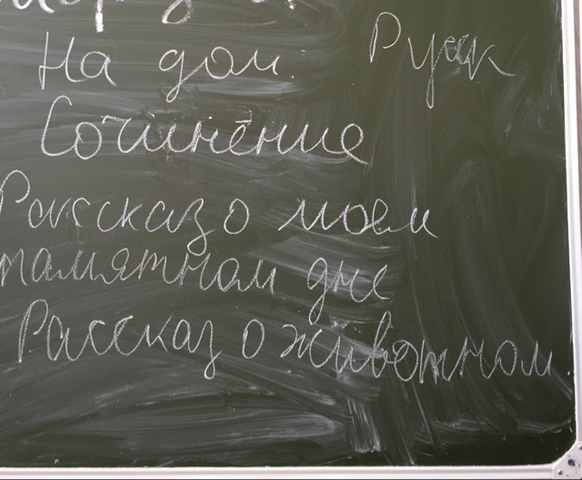 На дом. Руск
Сочинение
Рассказ о моем
памятном дне
Рассказ о животном